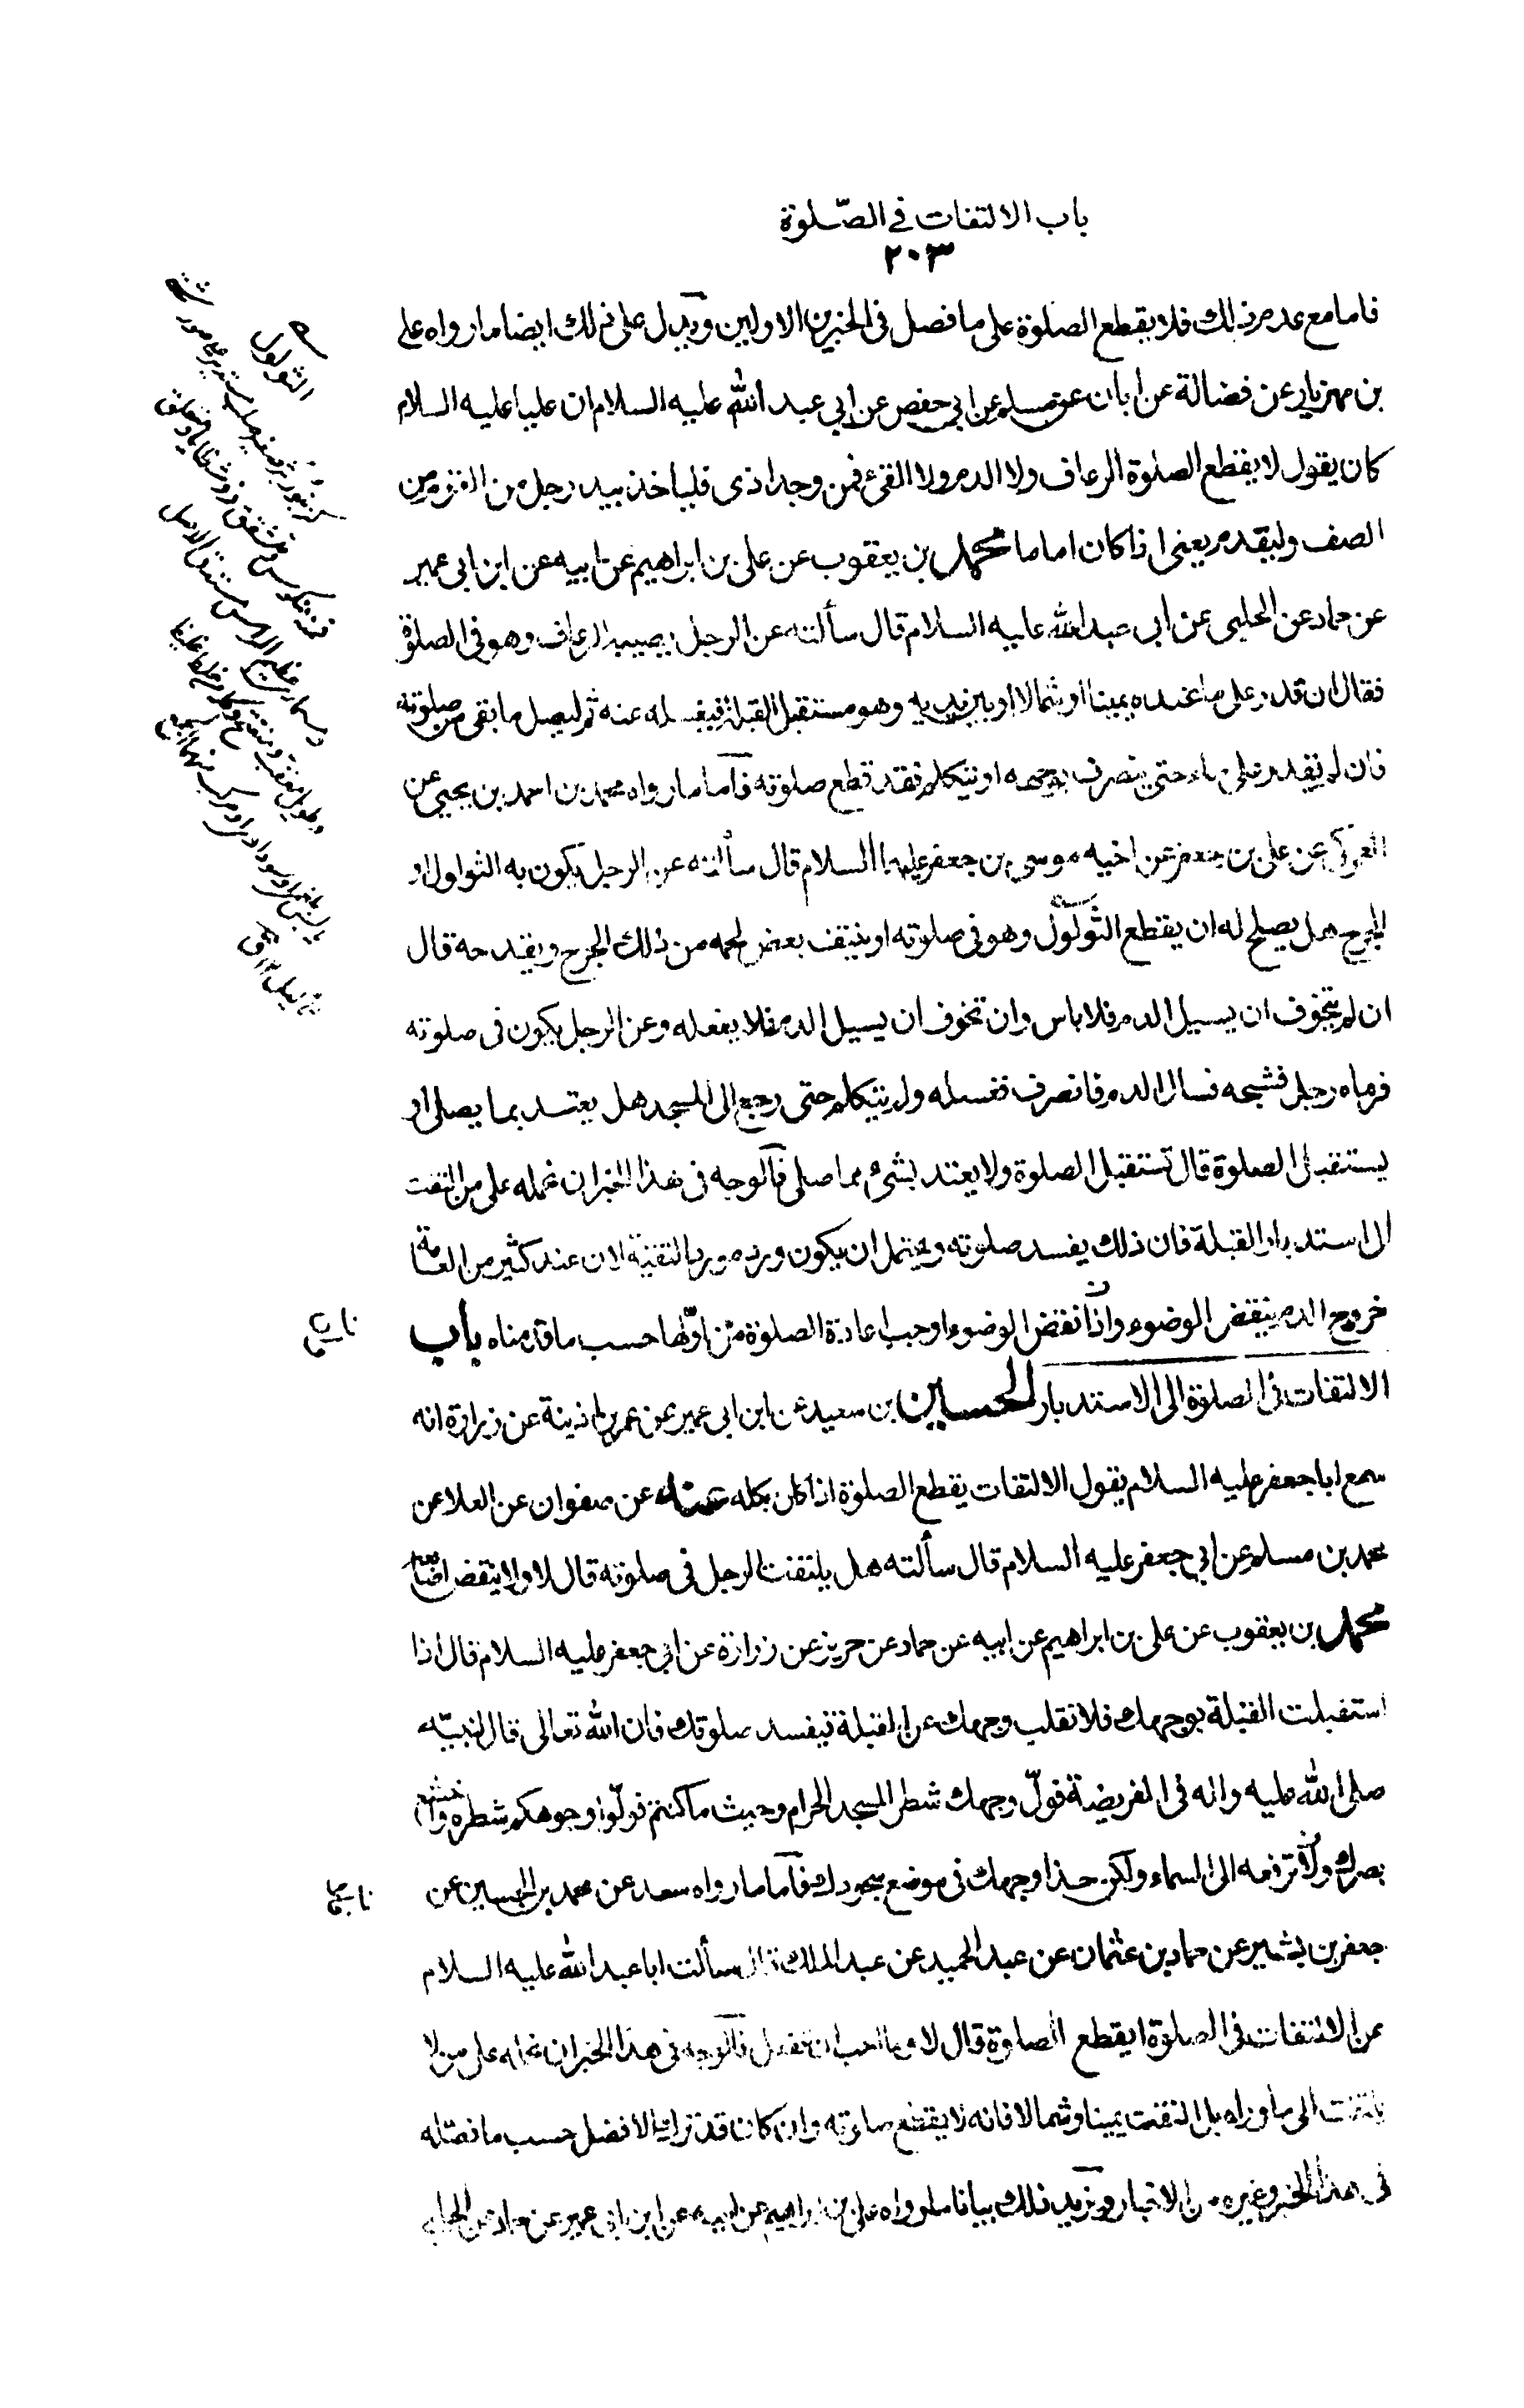 باب الالتفات في الصّلوة
٢٠٣
فاما مع عدم ذلك فلا يقطع الصلوة على ما فصل فى الخبرين الاولين ويدل على ذلك ايضا ما رواه على
بن مهزيار عن فضالة عن ابان عن مسلمة عن ابى حفص عن ابى عبد الله عليه السلام ان عليا عليه السلام
كان يقول لا يقطع الصلوة الرعاف ولا الدم ولا القئ فمن وجد اذى فلياخذ بيد رجل من القوم من
الصف وليقدمه يعنى اذا كان اماما محمد بن يعقوب عن على بن ابراهيم عن ابيه عن ابن ابى عمير
عن حماد عن الحلبى عن ابى عبد الله عليه السلام قال سألته عن الرجل يصيبه الرعاف وهو فى الصلوة
فقال ان قدر على ماء عنده يمينا او شمالا او بين يديه وهو مستقبل القبلة فيغسله عنه ثم ليصل ما بقى من صلوته
فان لم يقدر على ماء حتى ينصرف بوجهه او يتكلم فقد قطع صلوته فاما ما رواه محمد بن احمد بن يحيى عن
العمركى عن على بن جعفر عن اخيه موسى بن جعفر عليهما السلام قال سألته عن الرجل يكون به الثولول او
الجرح هل يصلح له ان يقطع الثولول وهو فى صلوته او ينتف بعض لحمه من ذلك الجرح ويقدحه قال
ان لم يتخوف ان يسيل الدم فلا باس وان تخوف ان يسيل الدم فلا يفعله وعن الرجل يكون فى صلوته
فرماه رجل فشجه فسال الدم فانصرف فغسله ولم يتكلم حتى رجع الى المسجد هل يعتد بما يصلى او
يستقبل الصلوة قال تستقبل الصلوة ولا يعتد بشئ مما صلى فالوجه فى هذا الخبر ان نحمله على من التفت
الى استدبار القبلة فان ذلك يفسد صلوته ويحتمل ان يكون ورد مورد التقية لان عند كثير من العامة
خروج الدم ينقض الوضوء واذا نقض الوضوء اوجب اعادة الصلوة من اولها حسب ما قدمناه باب
الالتفات فى الصلوة الى الاستدبار الحسين بن سعيد عن ابن ابى عمير عن عمر بن اذينة عن زرارة انه
سمع ابا جعفر عليه السلام يقول الالتفات يقطع الصلوة اذا كان بكله عنه عن صفوان عن العلا عن
محمد بن مسلم عن ابى جعفر عليه السلام قال سألته هل يلتفت الرجل فى صلوته قال لا ولا ينقض اصابعه
محمد بن يعقوب عن على بن ابراهيم عن ابيه عن حماد عن حريز عن زرارة عن ابى جعفر عليه السلام قال اذا
استقبلت القبلة بوجهك فلا تقلب وجهك عن القبلة فيفسد صلوتك فان الله تعالى قال لنبيّه
صلى الله عليه واله فى الفريضة فولّ وجهك شطر المسجد الحرام وحيث ما كنتم فولّوا وجوهكم شطره واخشع
بصرك ولا ترفعه الى السماء ولكن حذا وجهك فى موضع سجودك فاما ما رواه سعد عن محمد بن الحسين عن
جعفر بن بشير عن حماد بن عثمان عن عبد الحميد عن عبد الملك قال سألت ابا عبد الله عليه السلام
عن الالتفات فى الصلوة ايقطع الصلوة قال لا وما احب ان يفعل فالوجه فى هذا الخبر ان نحمله على من لا
يلتفت الى ما وراه بل التفت يمينا وشمالا فانه لا يقطع صلوته وان كان قد ترك الافضل حسب ما فصّله
فى هذا الخبر وغيره من الاخبار ويزيد ذلك بيانا ما رواه على بن ابراهيم عن ابيه عن ابن ابى عمير عن حماد عن الحلبى
الثولول